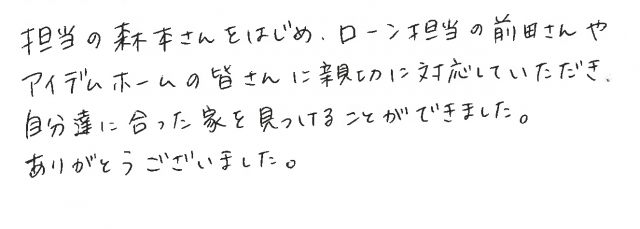 担当の森本さんをはじめ、ローン担当の前田さんや
アイデムホームの皆さんに親切に対応していただき、
自分達に合った家を見つけることができました。
ありがとうございました。